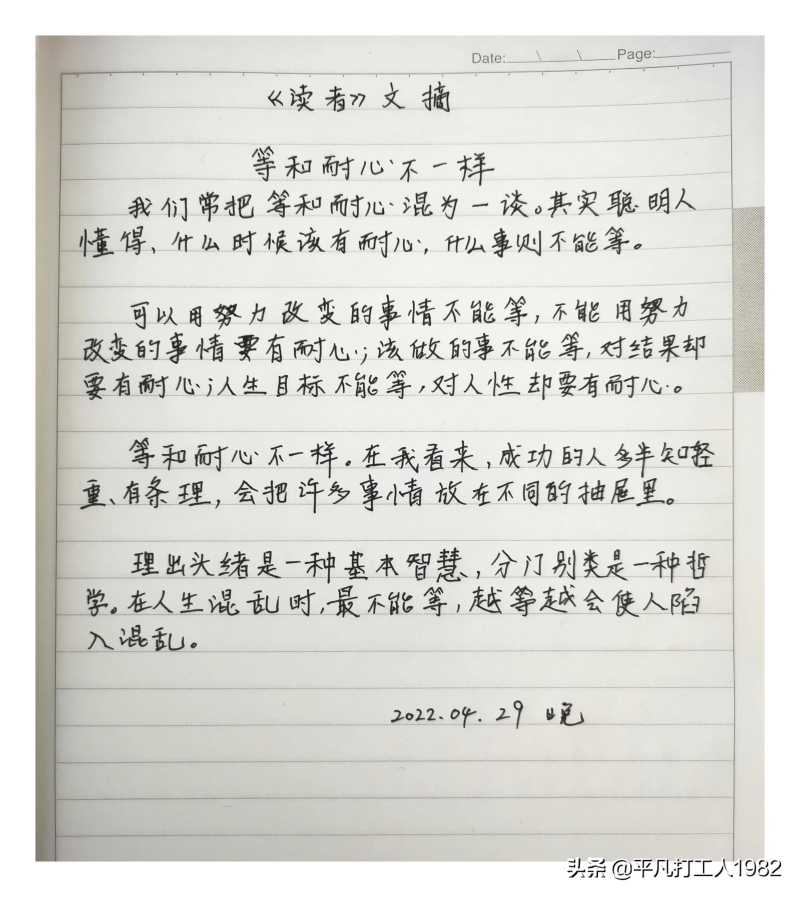 Date: \ \ Page:
《读者》文摘
等和耐心不一样
我们常把等和耐心混为一谈。其实聪明人
懂得、什么时候该有耐心，什么事则不能等。
可以用努力改变的事情不能等，不能用努力
改变的事情要有耐心；该做的事不能等，对结果却
要有耐心；人生目标不能等，对人性却要有耐心。
等和耐心不一样。在我看来，成功的人多半知轻
重、有条理，会把许多事情放在不同的抽屉里。
理出头绪是一种基本智慧，分门别类是一种哲
学。在人生混乱时，最不能等，越等越会使人陷
入混乱。
2022.04.29 晚
头条 @平凡打工人1982